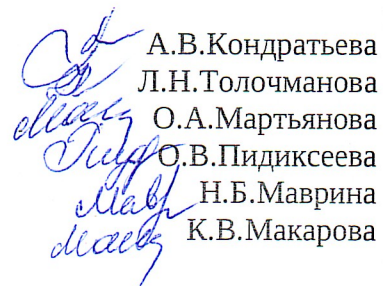 А.В.Кондратьева
Л.Н.Толочманова
О.А.Мартьянова
О.В.Пидиксеева
Н.Б.Маврина
К.В.Макарова